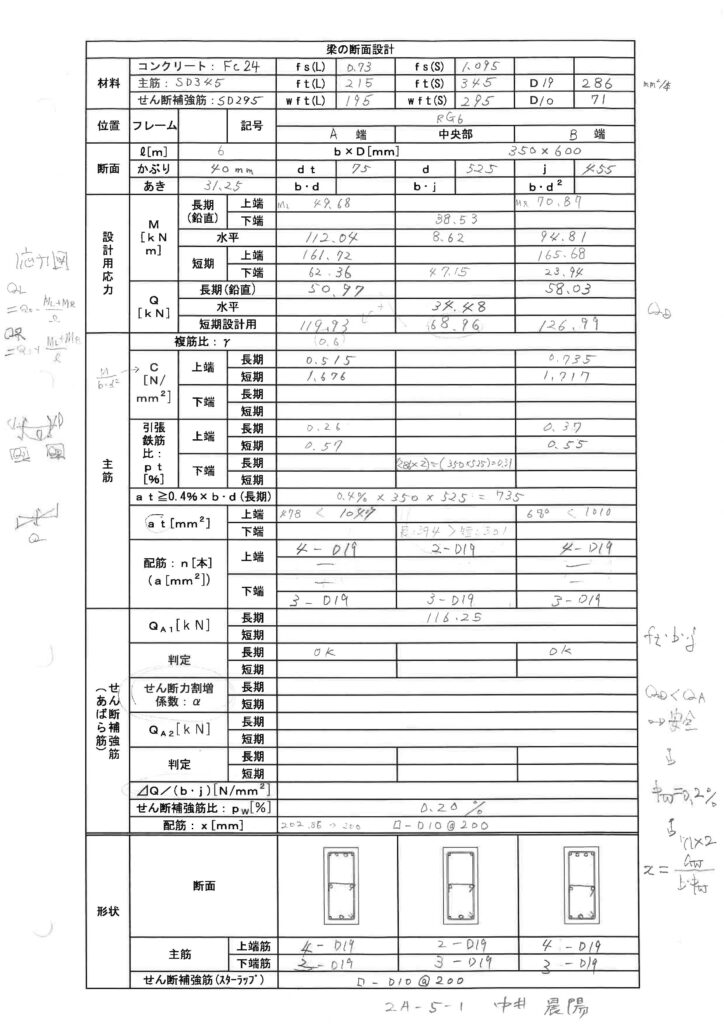 梁の断面設計
材料 コンクリート: Fc24 fs(L) 0.73 fs(S) 1.095
主筋: SD345 ft(L) 215 ft(S) 345 D19 286 mm²/本
せん断補強筋: SD295 wft(L) 195 wft(S) 295 D10 71
位置 フレーム 記号 RG6
A 端 中央部 B 端
断面 ℓ[m] 6 b×D[mm] 350×600
かぶり 40mm dt 75 d 525 j 455
あき 31.25 b・d b・j b・d²
設計用応力 M[kNm] 長期(鉛直) 上端 ML 49.68 MR 70.87
下端 38.53
水平 112.04 8.62 94.81
短期 上端 161.72 165.68
下端 62.36 47.15 23.94
Q[kN] 長期(鉛直) 50.97 58.03
水平 34.48
短期設計用 119.93 68.96 126.99
QD
応力図
QL
主筋 複筋比: γ (0.6)
M/b・d² C[N/mm²] 上端 長期 0.515 0.735
短期 1.676 1.717
下端 長期
短期
引張鉄筋比: pt[%] 上端 長期 0.26 0.37
短期 0.57 0.55
下端 長期
短期
at≧0.4%×b・d(長期) 0.4% × 350 × 525 = 735
at[mm²] 上端 478 < 1049 680 < 1010
下端 長:394 > 短:301
配筋: n[本] (a[mm²]) 上端 4-D19 2-D19 4-D19
下端 3-D19 3-D19 3-D19
Q
せん断補強筋(あばら筋) QA1[kN] 長期 116.25
短期
判定 長期 OK OK
短期
せん断力割増係数: α 長期
短期
QA2[kN] 長期
短期
判定 長期
短期
⊿Q/(b・j)[N/mm²]
せん断補強筋比: pw[%] 0.20%
配筋: x[mm] 202.86→200 ロ-D10@200
QD<QA
→安全
↓
pw=0.2%
↓
形状 断面
主筋 上端筋 4-D19 2-D19 4-D19
下端筋 3-D19 3-D19 3-D19
せん断補強筋(スターラップ) ロ-D10@200
2A-5-1 中井 晨陽